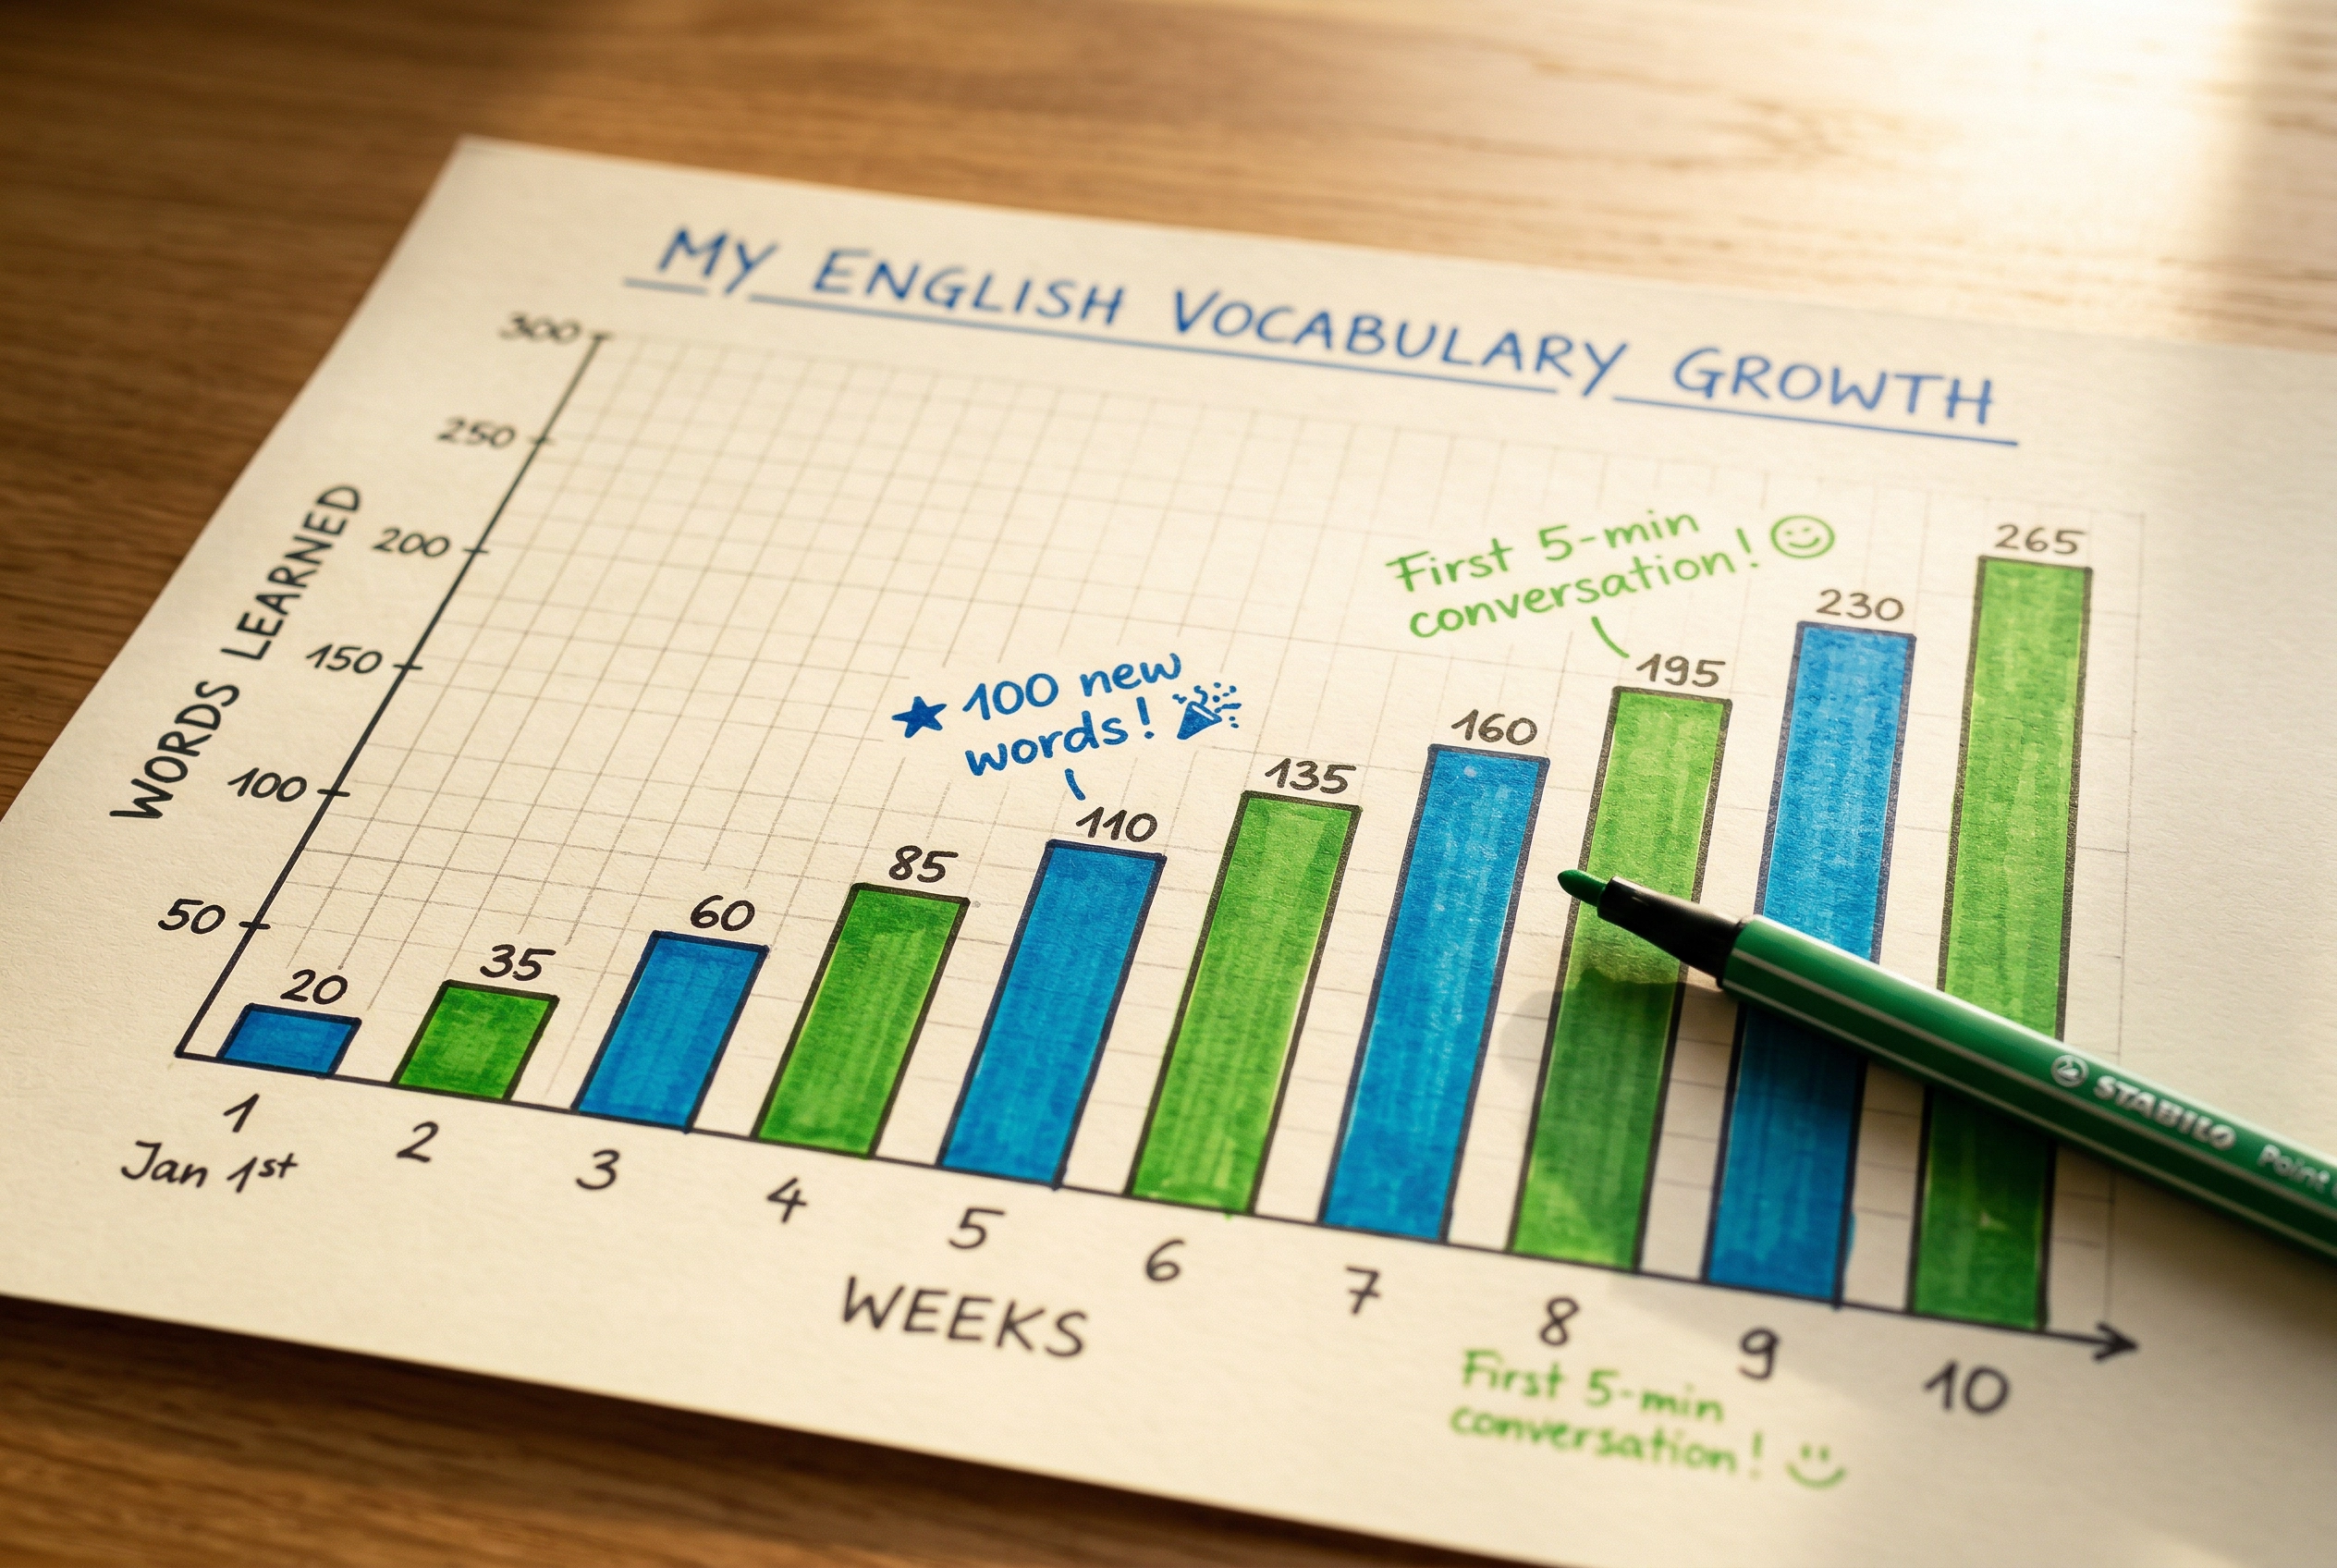 MY ENGLISH VOCABULARY GROWTH
WORDS LEARNED
300
250
200
150
100
50
20
35
60
85
★ 100 new
words! 🎉
110
135
160
First 5-min
conversation! 🙂
195
230
265
1
2
3
4
5
6
7
8
9
10
Jan 1st
WEEKS
First 5-min
conversation! 🙂
STABILO Point